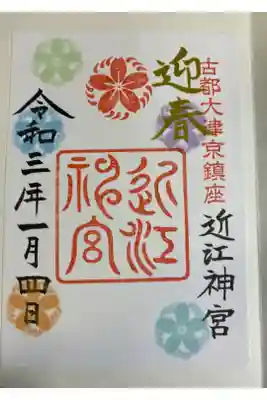 古都大津京鎮座
近江神宮
迎春
近江
神宮
令和三年一月四日